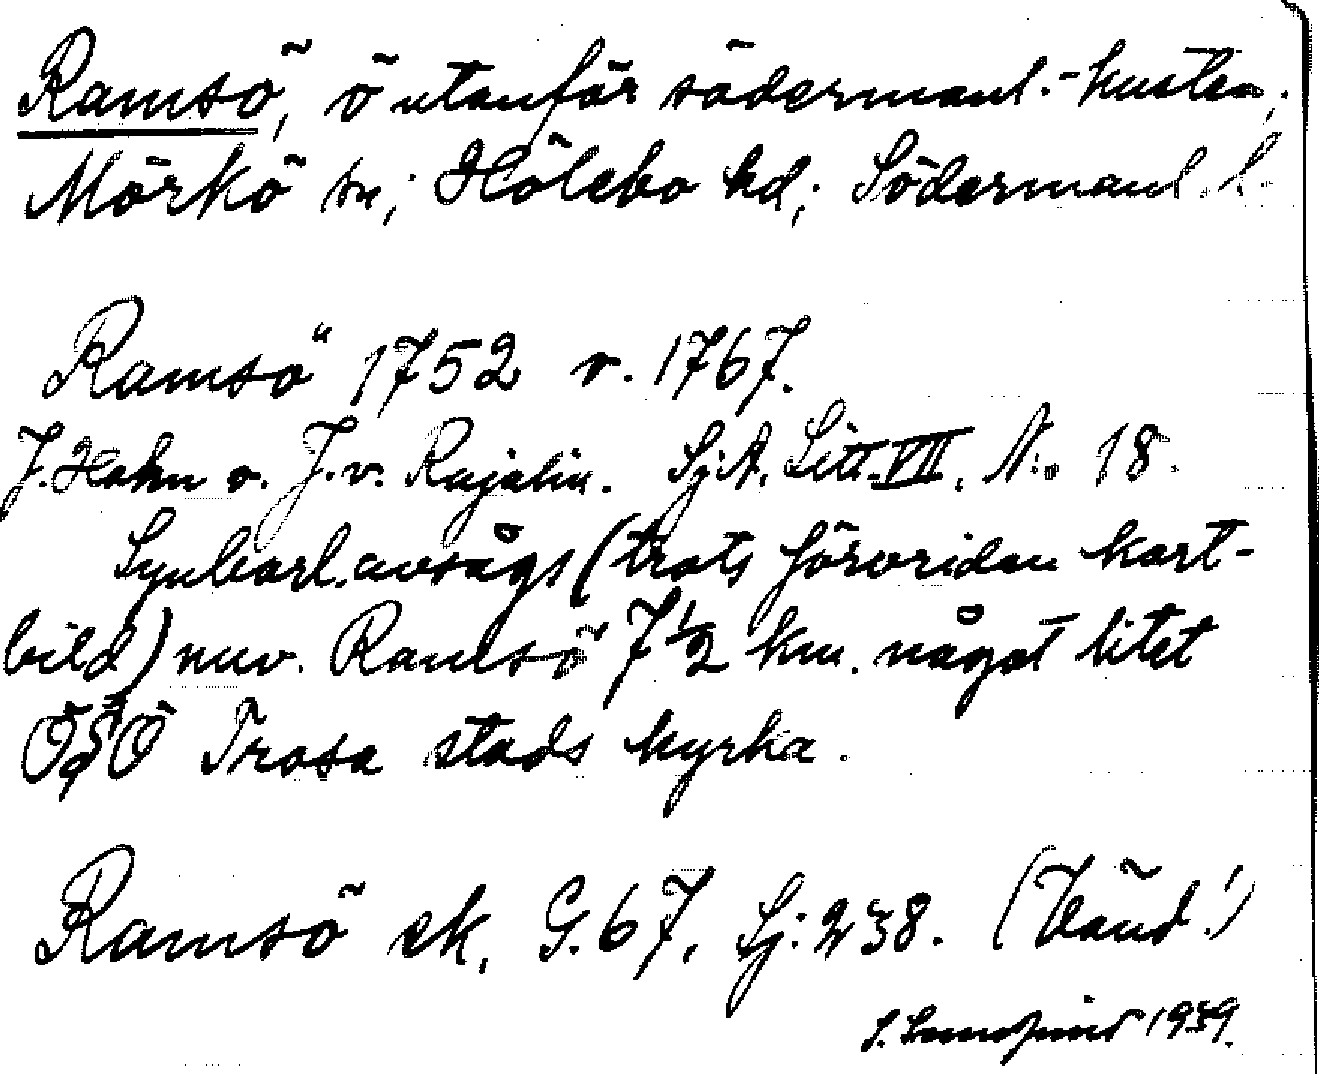 Ramsö, ö utanför södermanl.-kusten,
Mörkö sn; Hölebo hd; Södermanl. l.
Ramsö" 1752 o. 1767.
J. Hahn o. J. v. Rajalin. SjA. Litt. VII. No 18.
Synbarl. avsågs (trots förvriden kart-
bild) nuv. Ramsö 7 1/2 km. något litet
ÖSÖ Trosa stads kyrka.
Ramsö ek. G. 67, Sj: 238. (Vänd!)
1939.